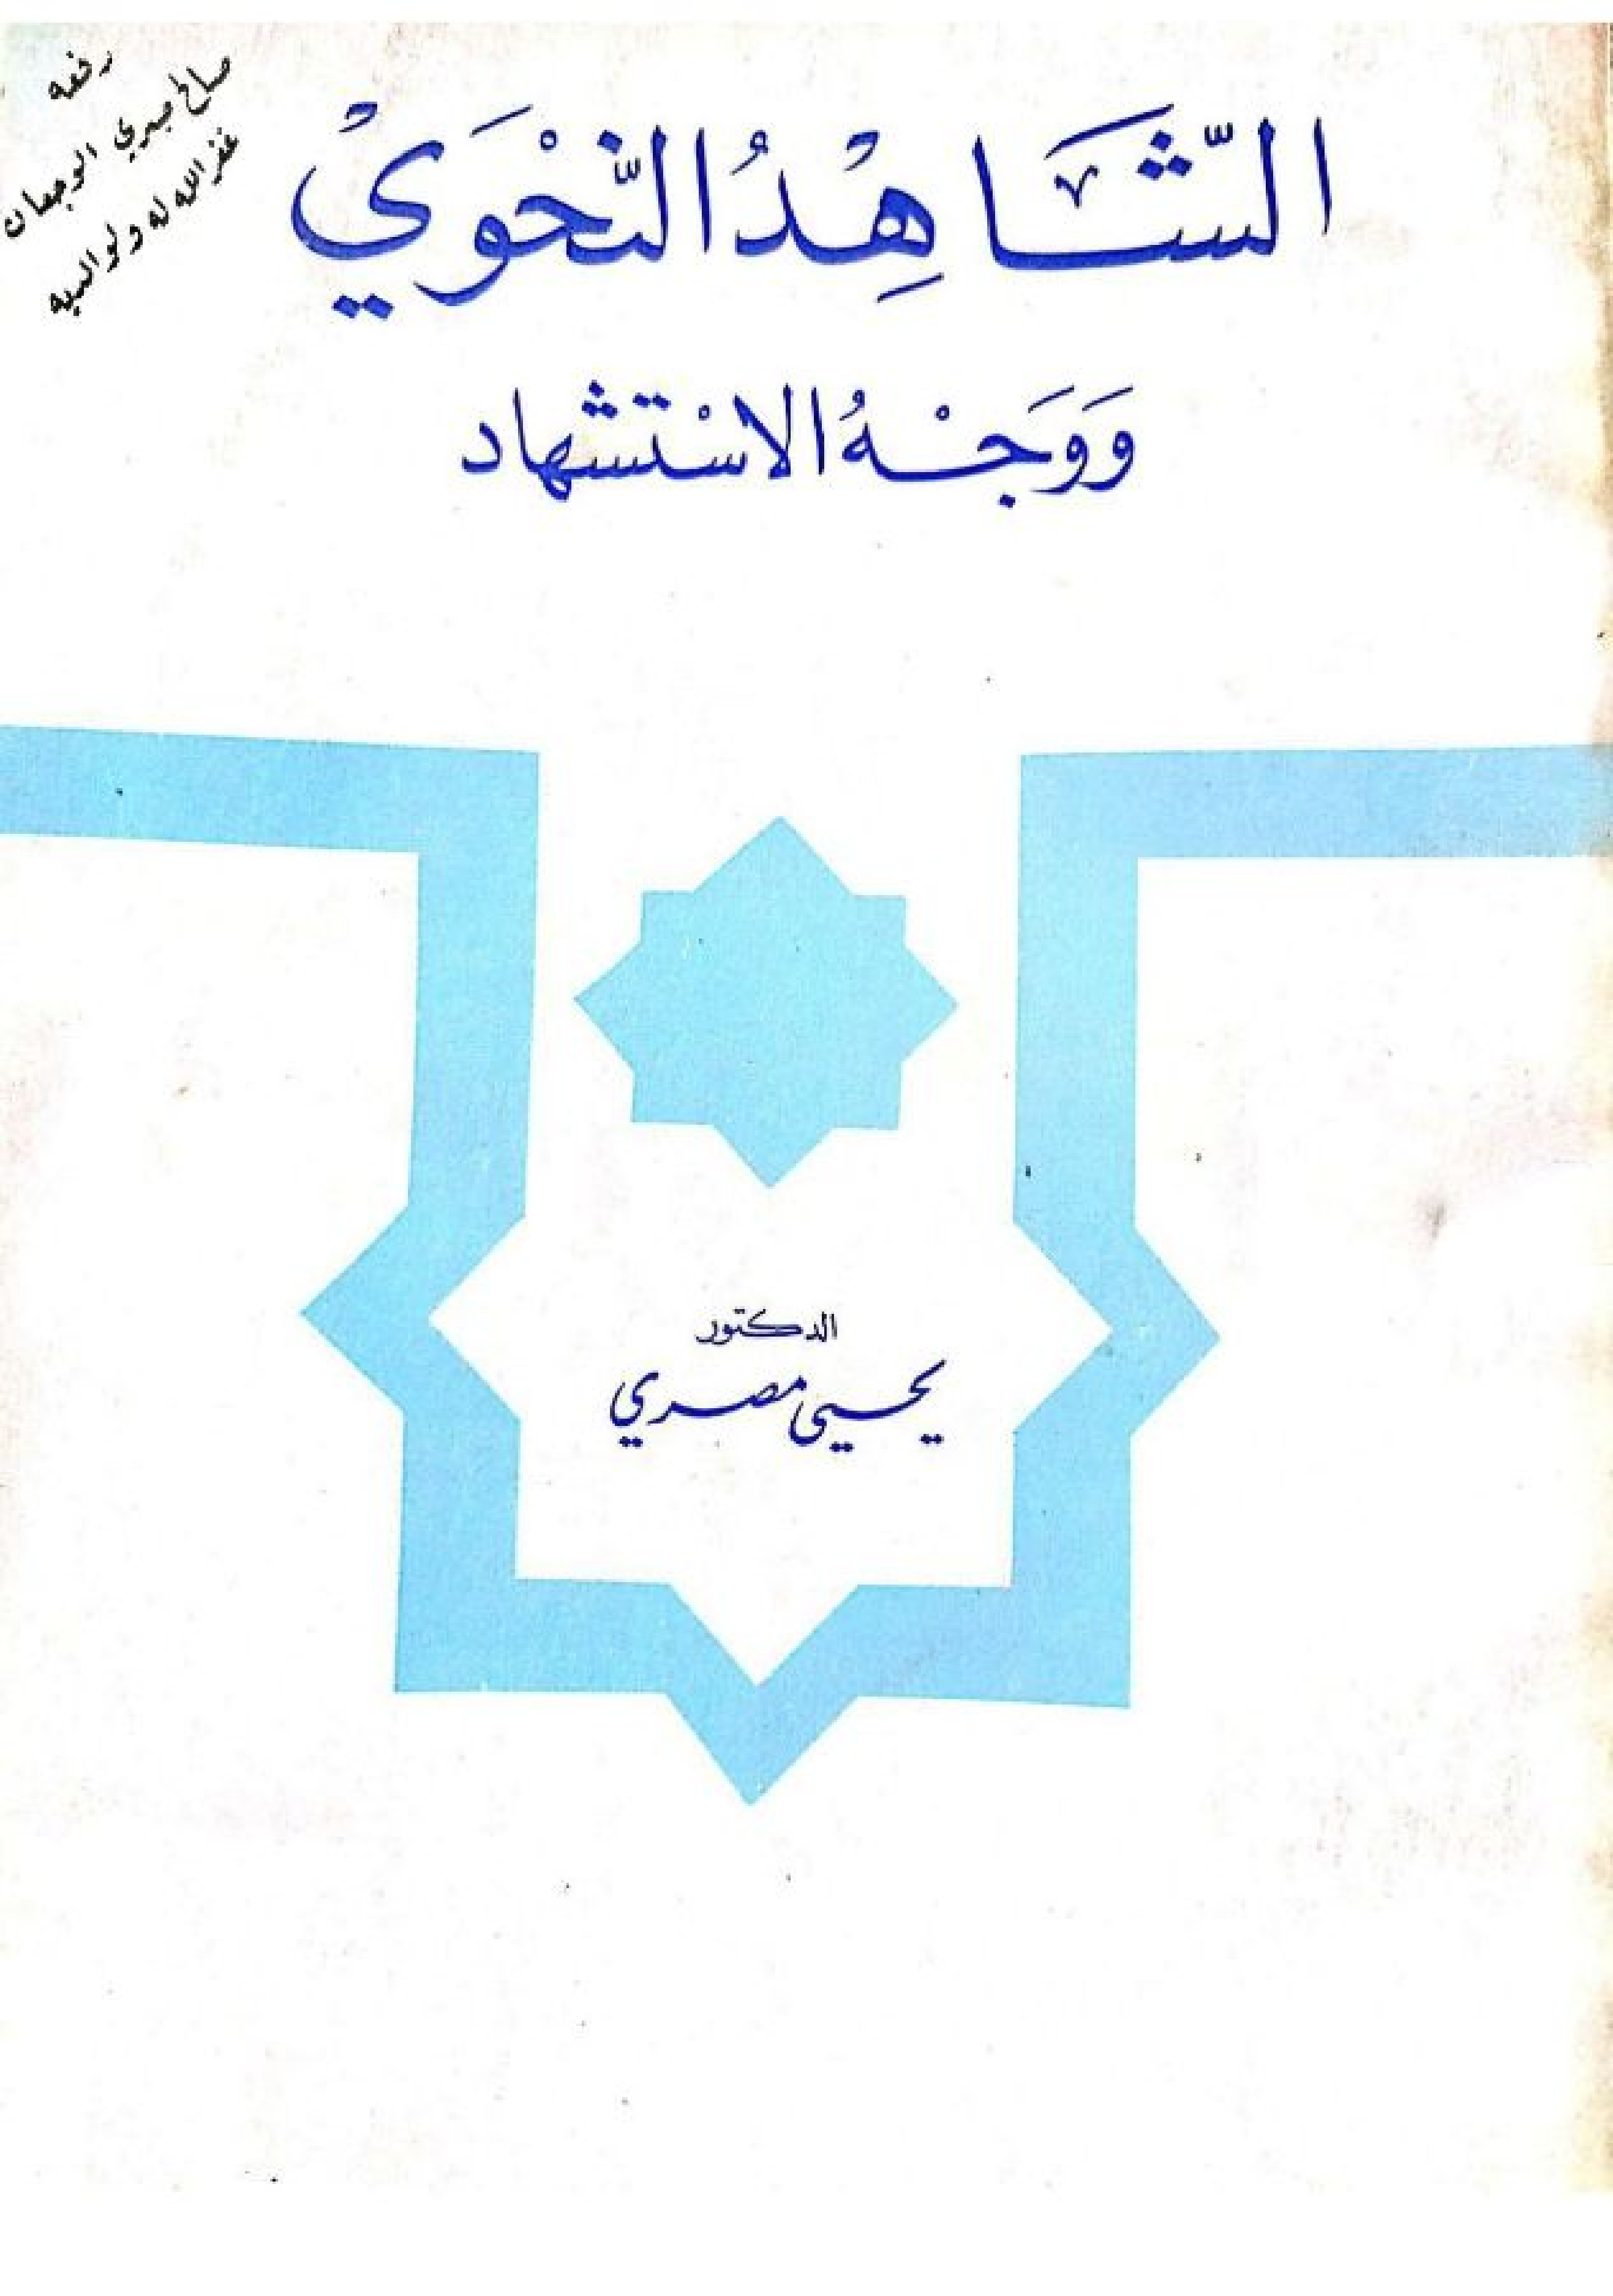 رفعه
صالح صبري الوجهان
غفر الله له ولوالديه
الشَّاهِدُ النَّحْوَيْ
وَوَجْهُ الاسْتشهاد
الدكتور
يحيى مصري